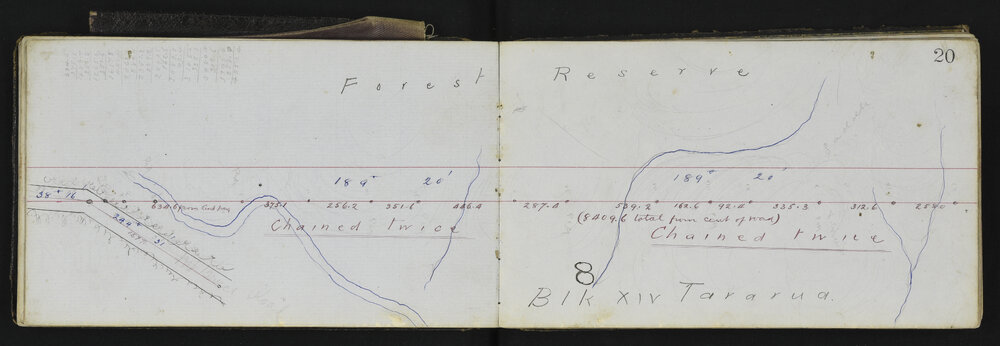 20
Forest Reserve
189° 20'
189° 20'
38° 16
634.6 from Cent peg 375.1 256.2 351.6 446.4 287.4 539.2 162.6 92.4 335.3 312.6 258.0
(8409.6 total from cent of road)
Chained twice
Chained twice
299° 31
8
Blk XIV Tararua.